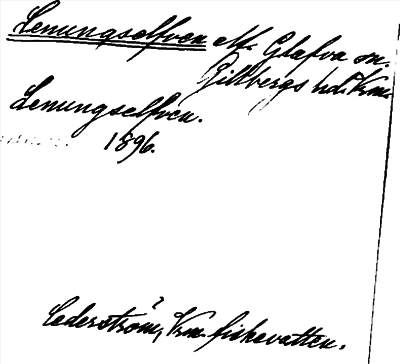 Lenungselfven elf. Glafva sn.
Gillbergs hd. Vrm.
Lenungselfven.
1896.
Cederström, Vrm. fiskevatten.